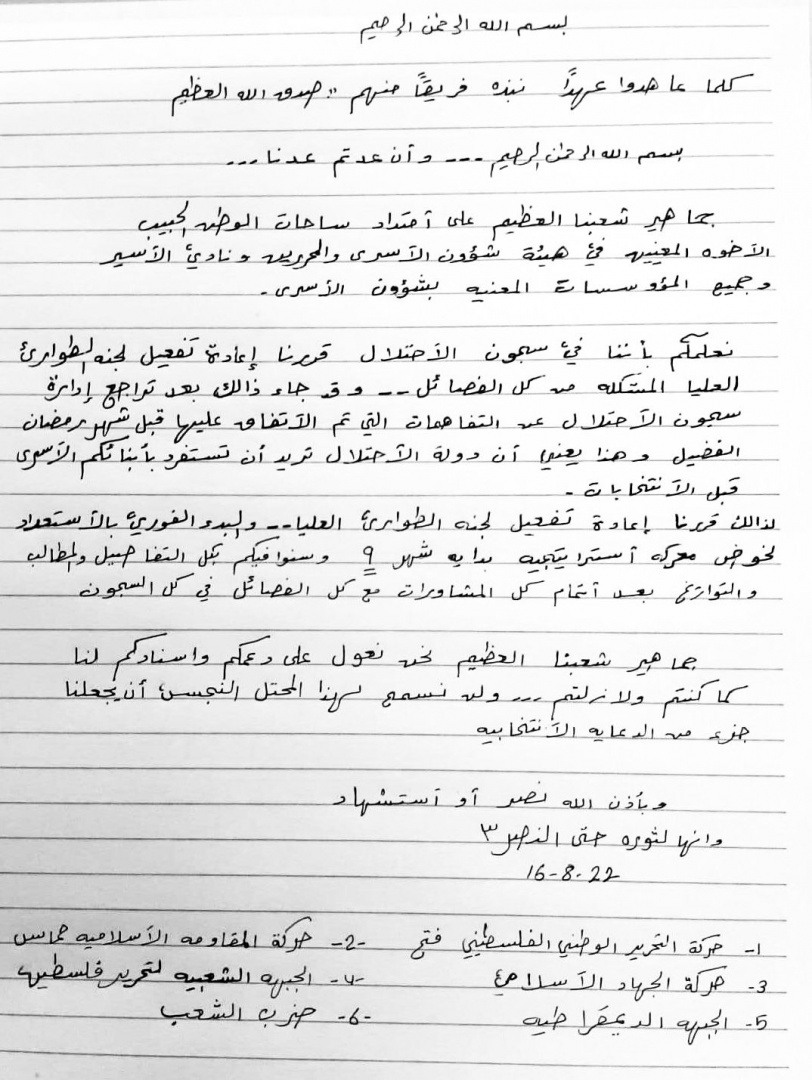 بسم الله الرحمن الرحيم
كلما عاهدوا عهدًا نبذه فريقًا منهم " صدق الله العظيم
بسم الله الرحمن الرحيم --- وأن عدتم عدنا ---
جماهير شعبنا العظيم على أمتداد ساحات الوطن الحبيب
الأخوه المعنيين في هيئة شؤون الأسرى والمحررين ونادي الأسير
وجميع المؤوسسات المعنيه بشؤون الأسرى .
نعلمكم بأننا في سجون الأحتلال قررنا إعادة تفعيل لجنه الطوارئ
العليا المشكله من كل الفصائل -- وقد جاء ذالك بعد تراجع إدارة
سجون الأحتلال عن التفاهمات التي تم الأتفاق عليها قبل شهر رمضان
الفضيل وهذا يعني أن دولة الأحتلال تريد أن تستفرد بأبنائكم الأسرى
قبل الأنتخابات .
لذالك قررنا إعادة تفعيل لجنه الطوارئ العليا -- والبدء الفوري بالأستعداد
لخوض معركه أستراتيجيه بدايه شهر ٩ وسنوافيكم بكل التفاصيل والمطالب
والتواريخ بعد أتمام كل المشاورات مع كل الفصائل في كل السجون
جماهير شعبنا العظيم نحن نعول على دعمكم واسنادكم لنا
كما كنتم ولا زلتم --- ولن نسمح لهذا المحتل النجس أن يجعلنا
جزء من الدعايه الأنتخابيه
وبأذن الله نصر أو أستشهاد
وانها لثوره حتى النصر ٣
16-8-22
1- حركة التحرير الوطني الفلسطيني فتح -2- حركة المقاومه الأسلاميه حماس
3- حركة الجهاد الأسلامي -4- الجبهه الشعبيه لتحرير فلسطين
5- الجبهه الديمقراطيه -6- حزب الشعب